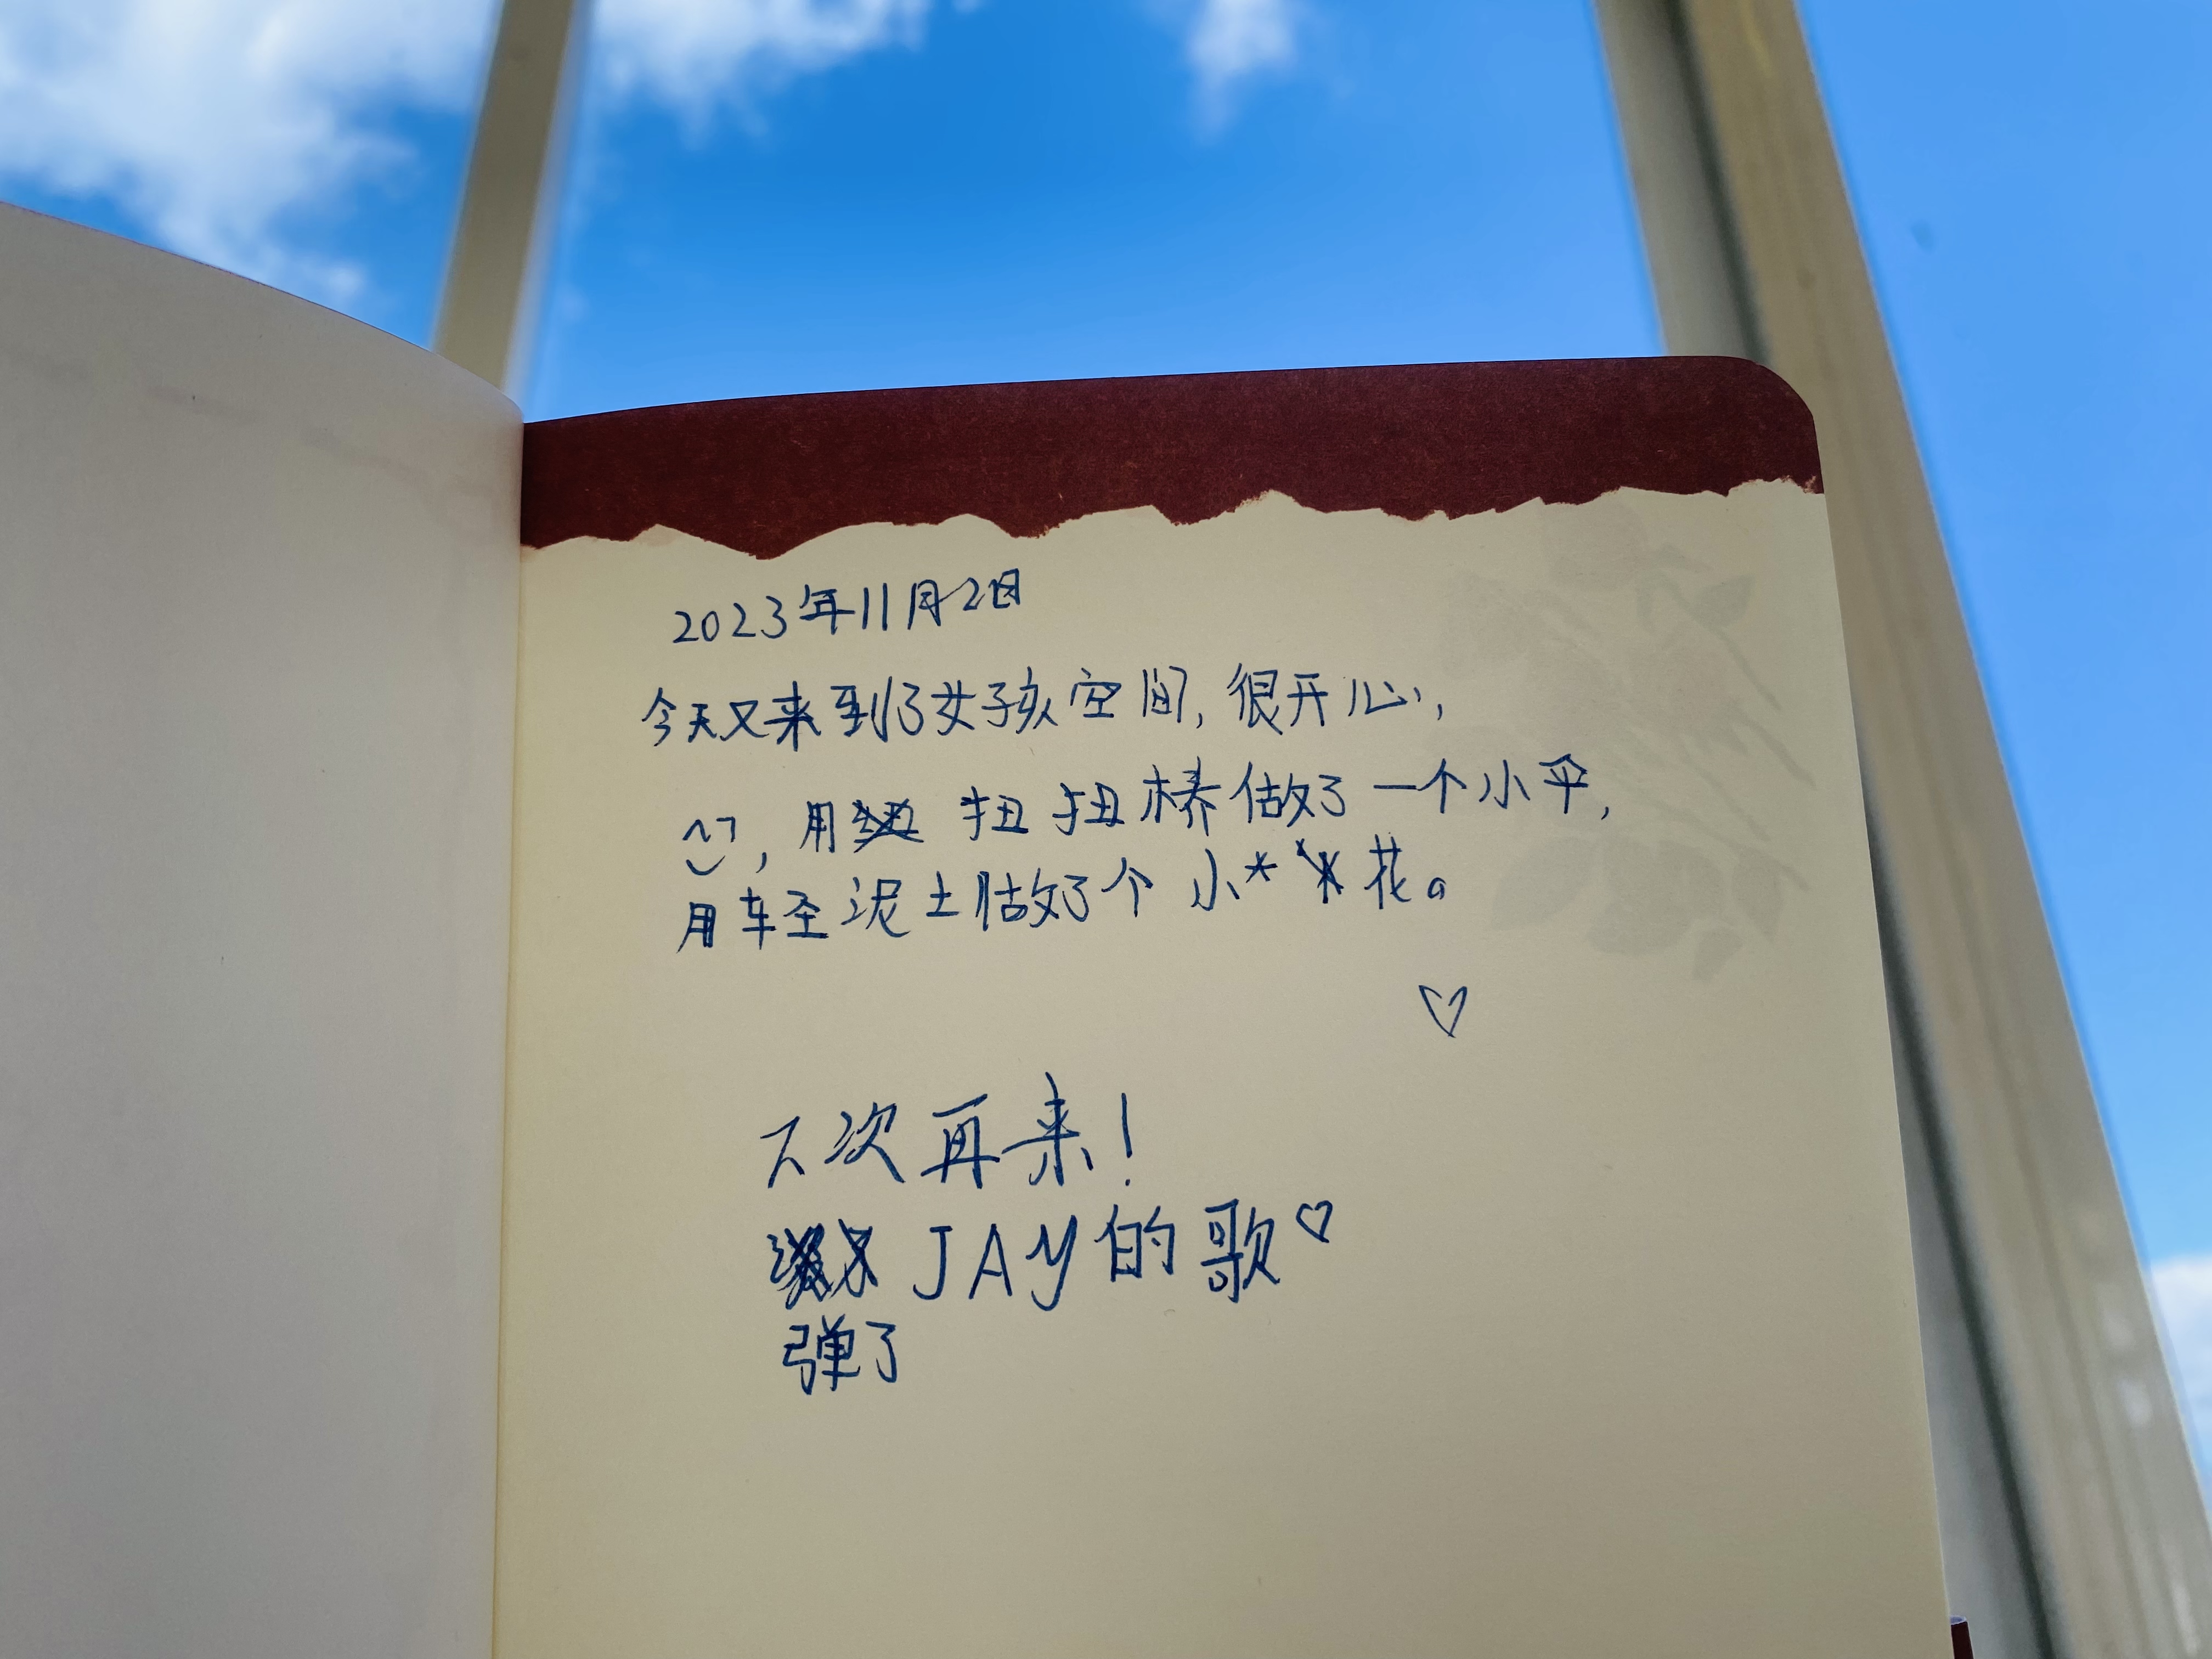 2023年11月2日
今天又来到了女孩空间,很开心,
,用 扭扭棒做了一个小伞,
用轻泥土做了个小 花。
下次再来!
JAY的歌♡
弹了